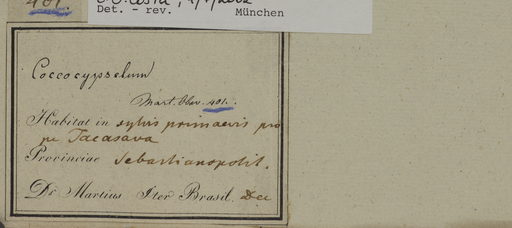 401.
Det. - rev. München
Coccocypselum
Mart. Obs. 401.
Habitat in sylvis primaevis pro
pe Tacasava
Provinciae Sebastianopolit.
Dr. Martius Iter Brasil. Dec